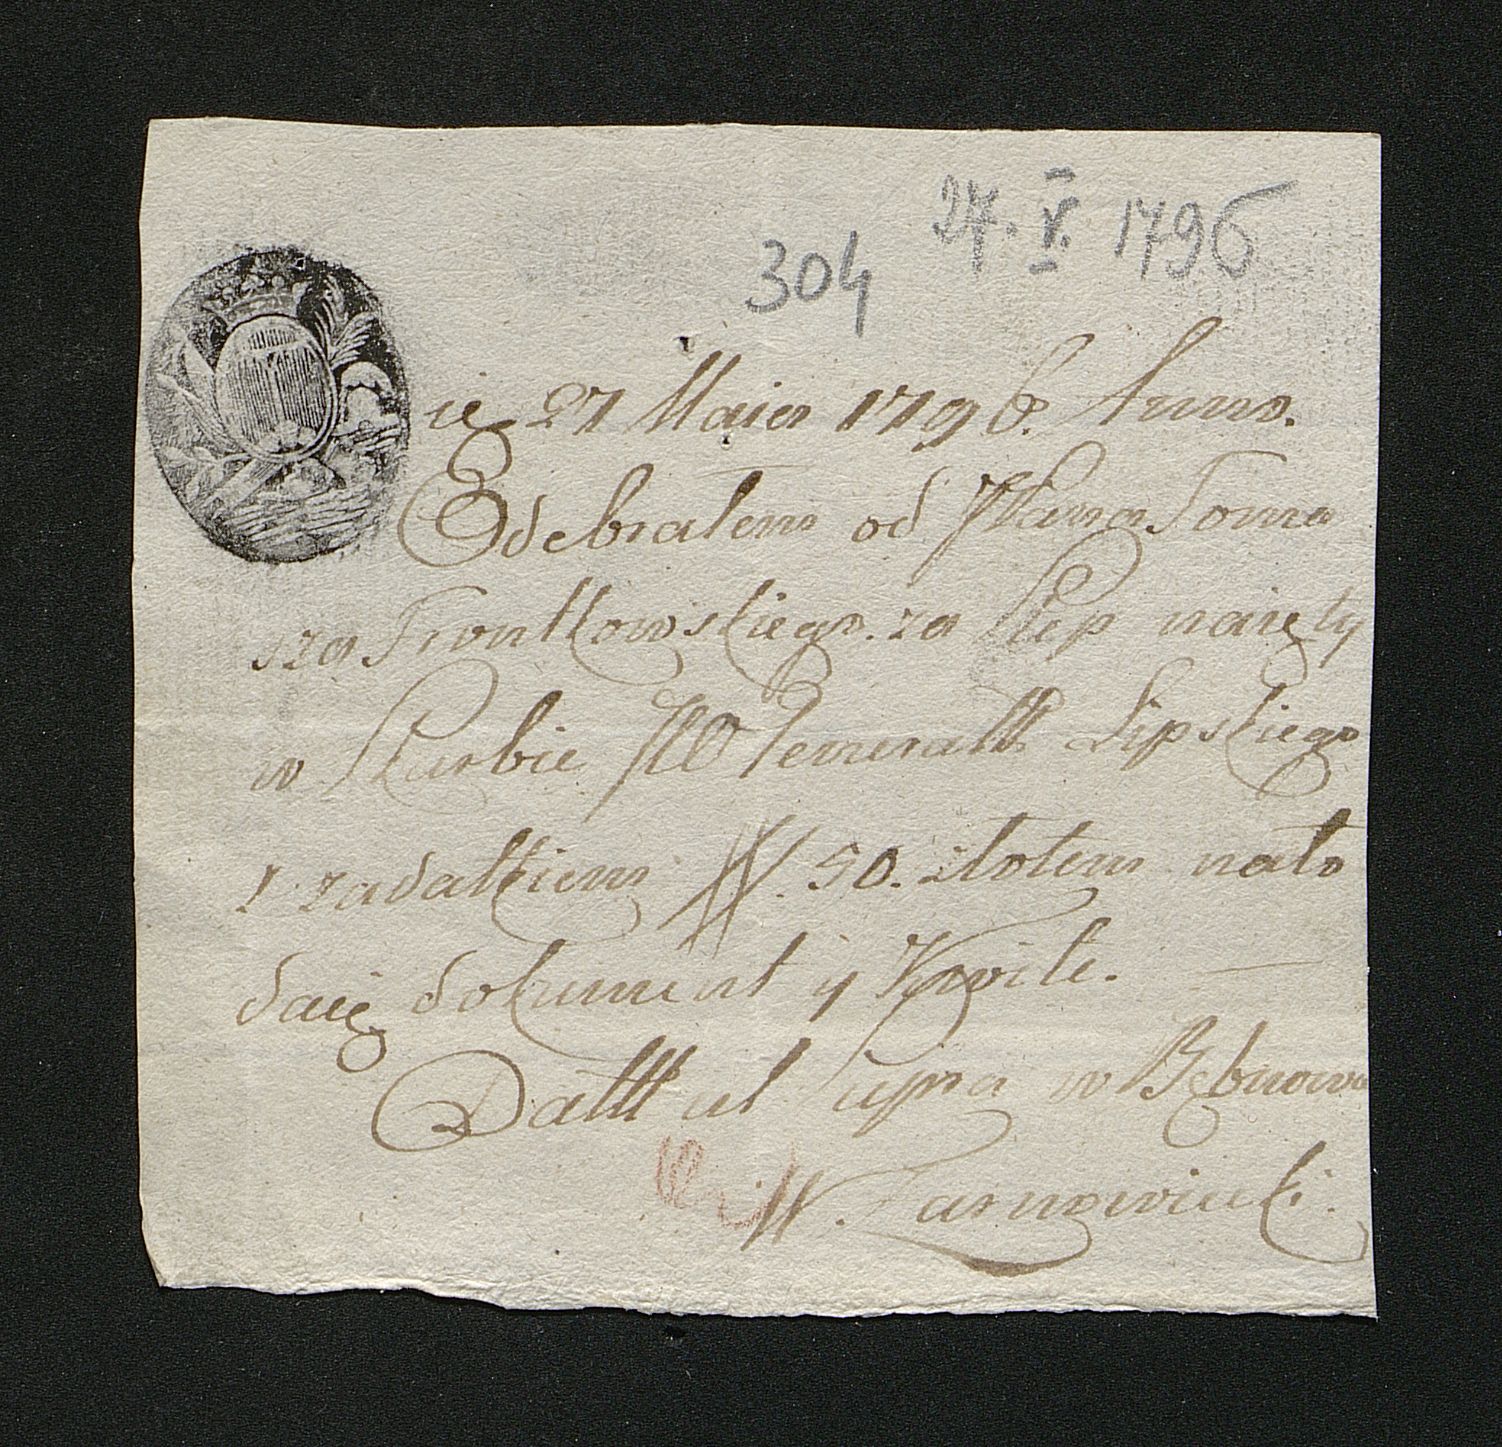 27. V. 1796
304
27 Maia 1796. Anno.
Odebrałem od Toma
sza Frontkowskiego. za Sklep naięty
w Skarbie JW Jenerałł Lipskiego
z zadatkiem 50. złotem nato
daię dokument y Kwite.
Dattt ut supra w
W. Tarnowiecki.